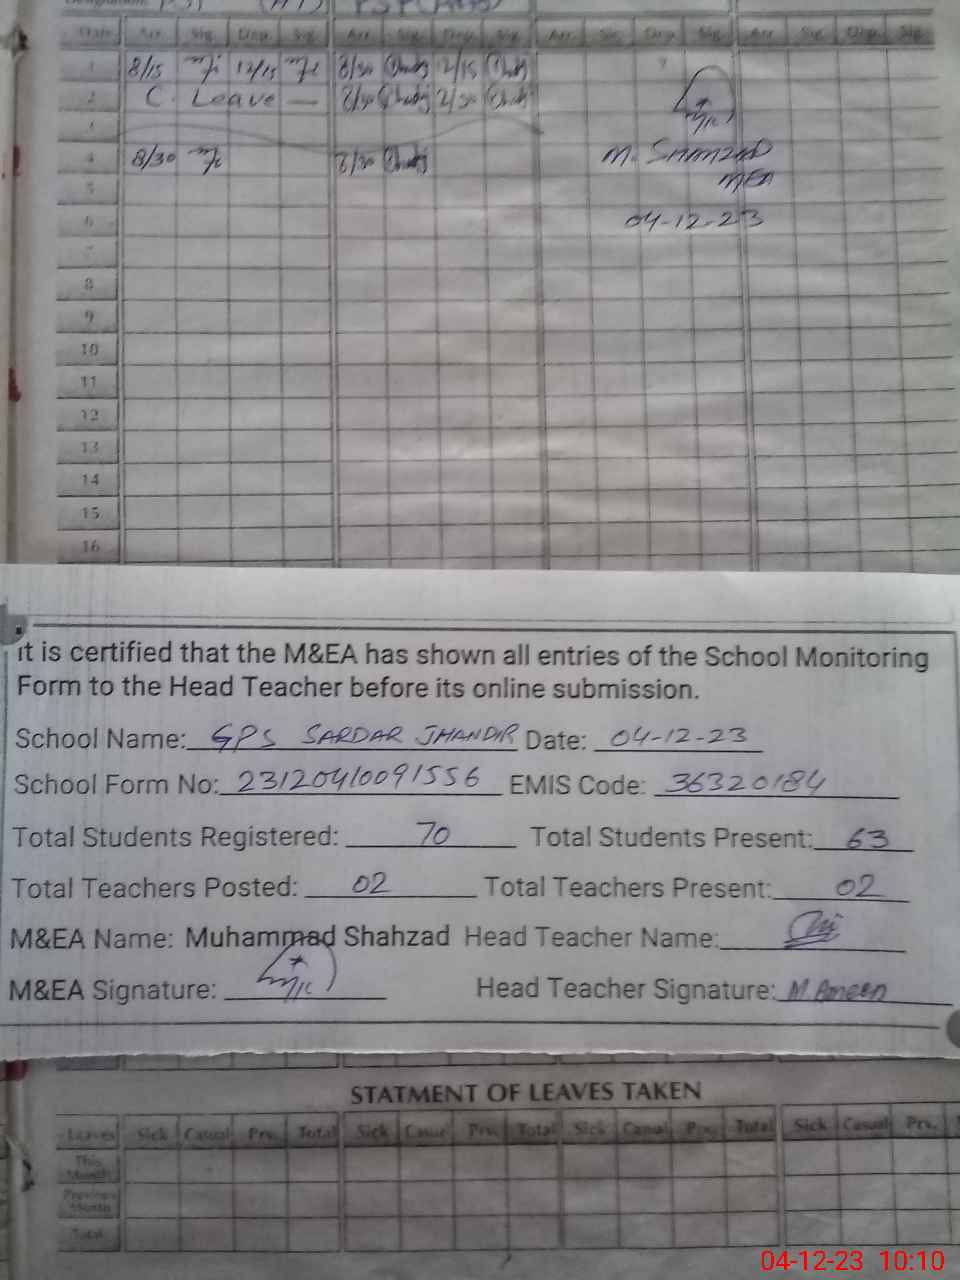 PST (HT) PSP(Arts)
Date Arr. Sig. Dep. Sig. Arr. Sig. Dep. Sig. Arr. Sig. Dep. Sig. Arr. Sig. Dep. Sig.
1 8/15 12/15
2 C. Leave —
3
4 8/30
M. SHAHZAD
5
MEA
6
04-12-23
7
8
9
10
11
12
13
14
15
16
it is certified that the M&EA has shown all entries of the School Monitoring
Form to the Head Teacher before its online submission.
School Name: GPS SARDAR JHANDIR Date: 04-12-23
School Form No: 23120410091556 EMIS Code: 36320184
Total Students Registered: 70 Total Students Present: 63
Total Teachers Posted: 02 Total Teachers Present: 02
M&EA Name: Muhammad Shahzad Head Teacher Name:
M&EA Signature: Head Teacher Signature: M Ameen
STATMENT OF LEAVES TAKEN
Leaves Sick Casual Prv. Total Sick Casual Prv. Total Sick Casual Prv. Total Sick Casual Prv.
This Month
Previous Month
Total
04-12-23 10:10